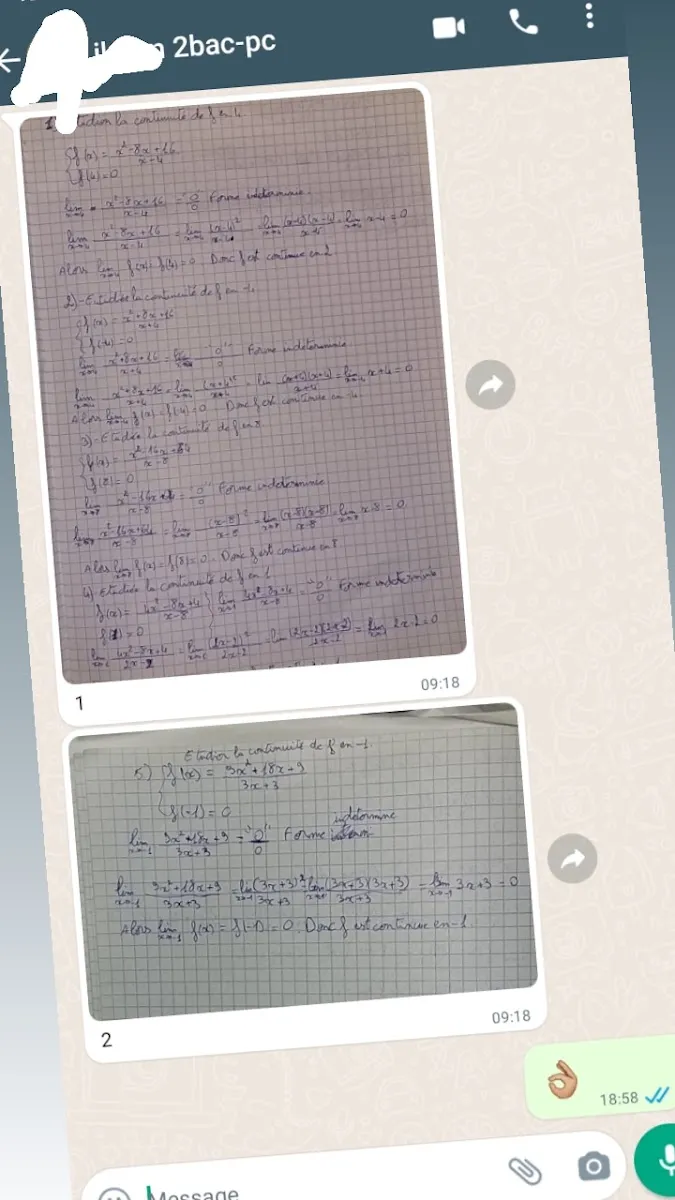 2bac-pc
1) Etudion la continuité de f en 4
f(x) = x²-8x+16 / x-4
f(4)=0
lim x→4 x²-8x+16 / x-4 = "0"/0 Forme indéterminie.
lim x→4 x²-8x+16 / x-4 = lim x→4 (x-4)² / x-4 = lim x→4 (x-4)(x-4) / x-4 = lim x→4 x-4 = 0
Alors lim x→4 f(x) = f(4) = 0 Donc f est continue en
2)-Etudier la continuité de f en -4
f(x) = x²+8x+16 / x+4
f(-4)=0
lim x→-4 x²+8x+16 / x+4 = "0"/0 Forme indéterminie
lim x→-4 x²+8x+16 / x+4 = lim x→-4 (x+4)² / x+4 = lim (x+4)(x+4) / x+4 = lim x→-4 x+4 = 0
Alors lim x→-4 f(x) = f(-4) = 0 Donc f est continue en -4
3)-Etudier la continuité de f en 8
f(x) = x²-16x+64 / x-8
f(8) = 0
lim x→8 x²-16x+64 / x-8 = "0"/0 Forme indéterminie
lim x→8 x²-16x+64 / x-8 = lim x→8 (x-8)² / x-8 = lim x→8 (x-8)(x-8) / x-8 = lim x→8 x-8 = 0
Alors lim x→8 f(x) = f(8) = 0. Donc f est continue en 8
4)-Etudier la continuité de f en 1
f(x) = 4x²-8x+4 / x-8 lim x→1 4x²-8x+4 / x-8 = "0"/0 Forme indéterminie
f(1) = 0
lim x→1 4x²-8x+4 / 2x-2 = lim x→1 (2x-2)² / 2x-2 = lim (2x-2)(2x-2) / 2x-2 = lim x→1 2x-2 = 0
1
09:18
Etudier la continuité de f en -1
5) f(x) = 9x²+18x+9 / 3x+3
f(-1) = 0
indétermine
lim x→-1 9x²+18x+9 / 3x+3 = "0"/0 Forme
lim x→-1 9x²+18x+9 / 3x+3 = lim x→-1 (3x+3)² / 3x+3 = lim x→-1 (3x+3)(3x+3) / 3x+3 = lim x→-1 3x+3 = 0
Alors lim x→-1 f(x) = f(-1) = 0. Donc f est continue en -1.
2
09:18
👌🏽
18:58
Message